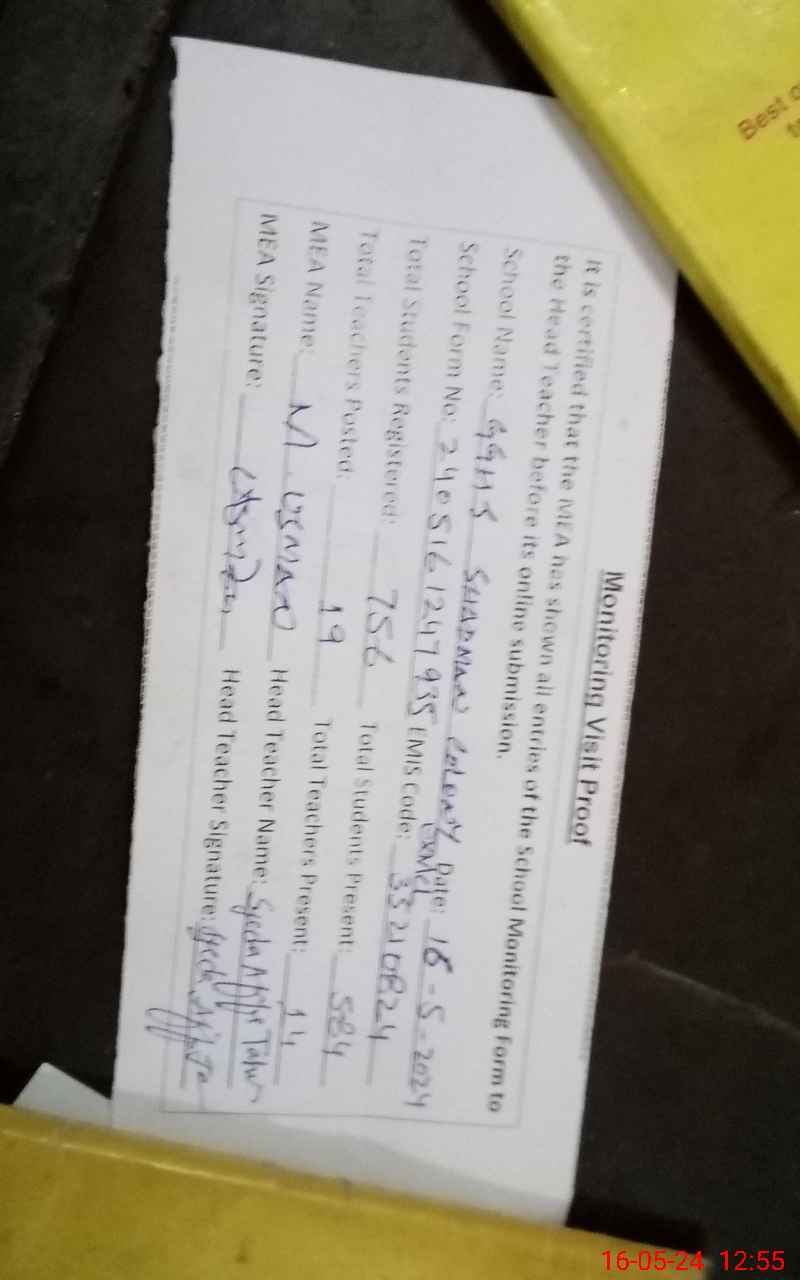 Monitoring Visit Proof
It is certified that the MEA has shown all entries of the School Monitoring Form to
the Head Teacher before its online submission.
School Name: GGHS SHADMAN Colony Date: 16-5-2024
School Form No: 2405161247935 EMIS Code: 35210824
Total Students Registered: 756 Total Students Present: 584
Total Teachers Posted: 19 Total Teachers Present: 14
MEA Name: M. USMAN Head Teacher Name: Syeda
MEA Signature: Head Teacher Signature: Syeda
Best
16-05-24 12:55